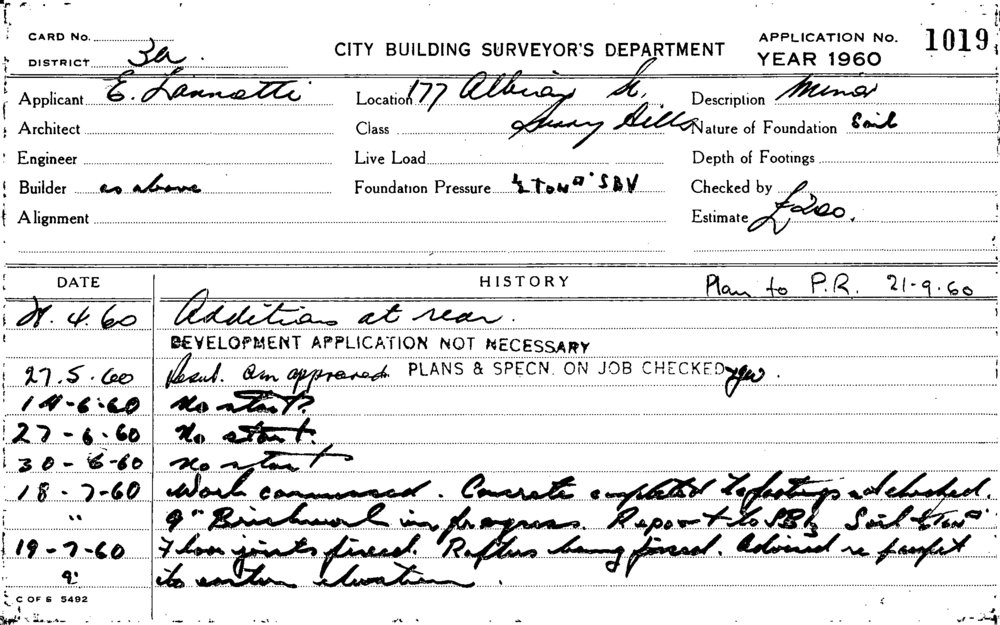 CARD No.
DISTRICT 3a.
CITY BUILDING SURVEYOR'S DEPARTMENT
APPLICATION No. 1019
YEAR 1960
Applicant E. Iannotti
Location 177 Albion St.
Description Minor
Architect
Class Surry Hills
Nature of Foundation Soil
Engineer
Live Load
Depth of Footings
Builder as above
Foundation Pressure ½ TON SBV
Checked by
Alignment
Estimate £200.
DATE
HISTORY
Plan to P.R. 21-9-60
4.60 Additions at rear.
DEVELOPMENT APPLICATION NOT NECESSARY
27.5.60 approved PLANS & SPECN. ON JOB CHECKED
14-6-60 No start.
27-6-60 No start.
30-6-60 No start
18-7-60 Work commenced. Concrete completed to footings checked.
" 9" Brickwork in progress. Report to Soil ½ TON
19-7-60 Floor joists fixed. Rafters being fixed. Advised re parapet
to elevation.
C OF S 5492